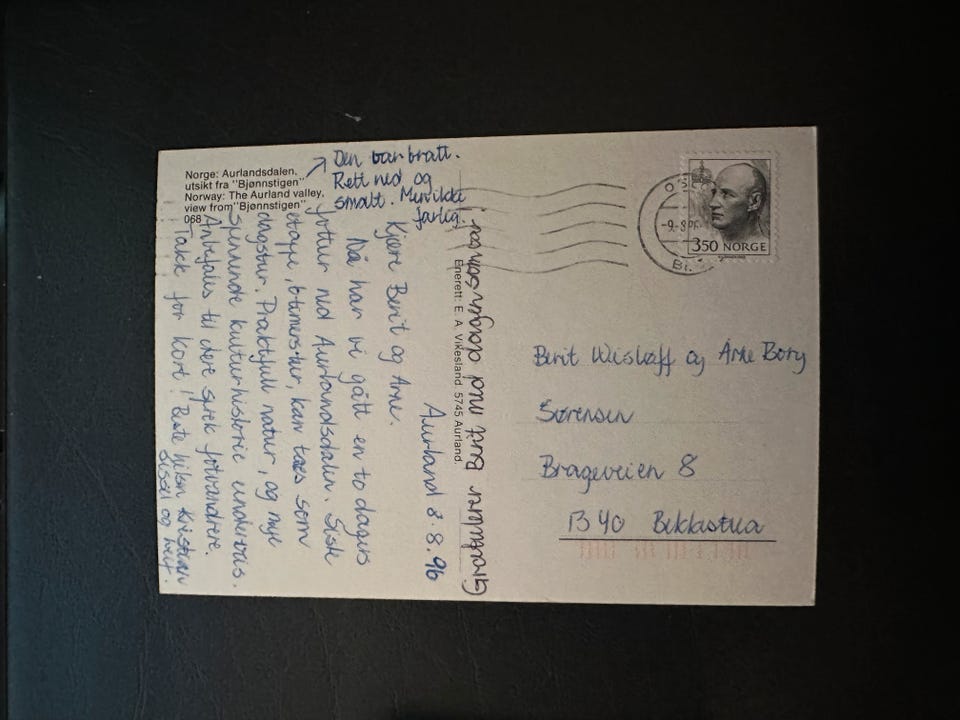 Norge: Aurlandsdalen,
utsikt fra "Bjønnstigen"
Norway: The Aurland valley,
view from "Bjønnstigen"
068
Den var bratt.
Rett ned og
smalt. Men ikke
farlig!
Aurland 8.8.96
Kjære Berit og Arne.
Nå har vi gått en to dagers
fottur ned Aurlandsdalen. Siste
etappe, 6 timers tur, kan taes som
dagstur. Praktfull natur, og mye
spennende kulturhistorie underveis.
Anbefales til dere sprek fotvandrere.
Takk for kort! Beste hilsen Kristian
Sissel og Leif.
Gratulerer Berit med dagen
Enerett: E. A. Vikesland. 5745 Aurland.
3.50 NORGE
Berit Wiskeff og Arne Borg
Sørensen
Brageveien 8
1340 Bekkestua